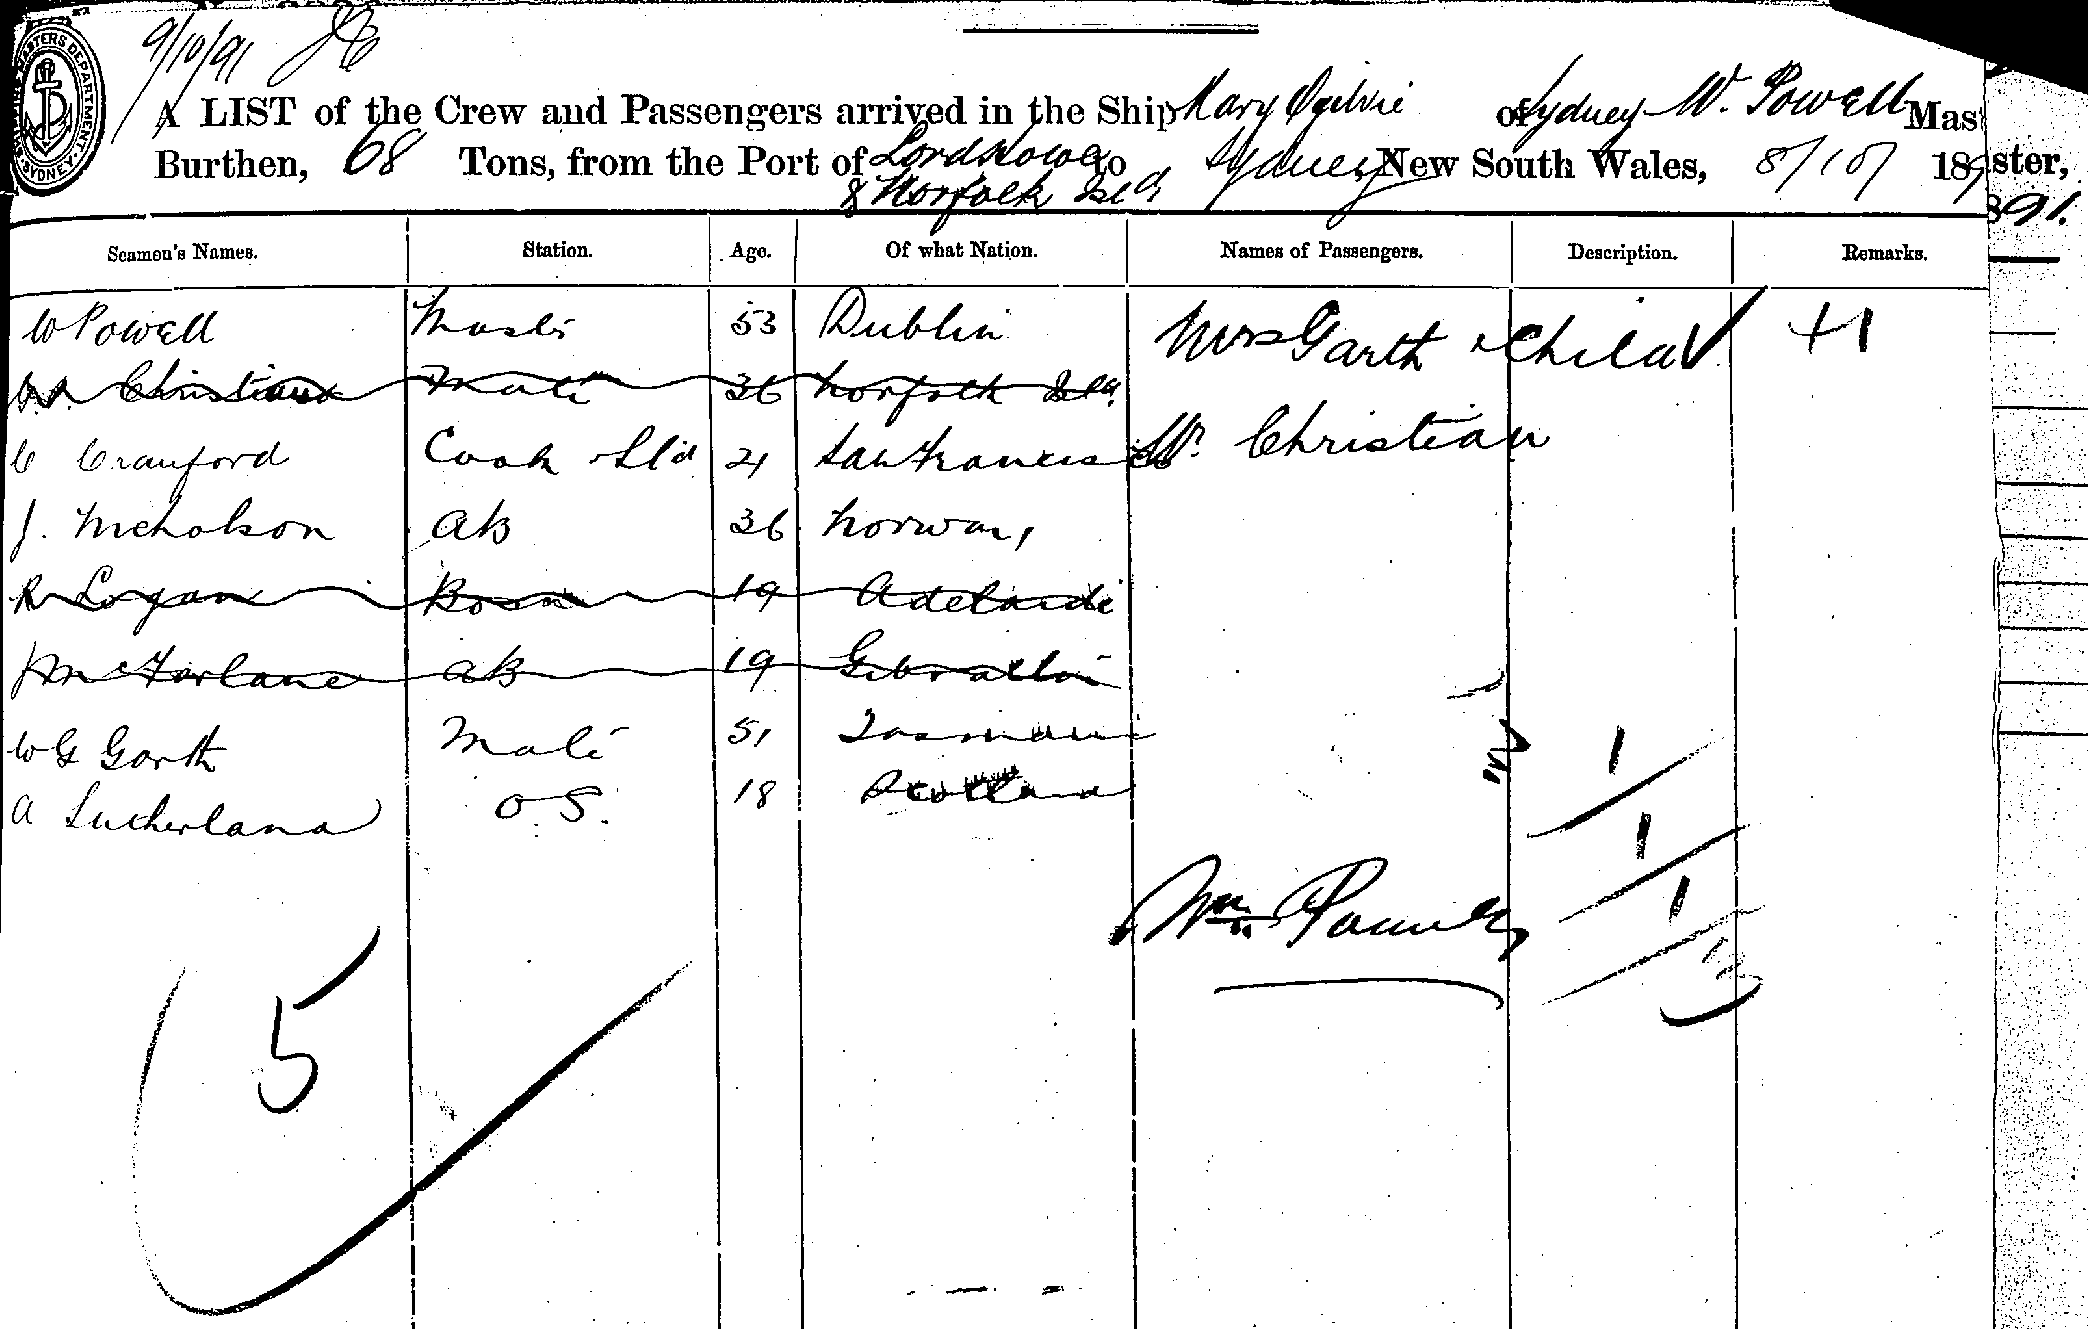 9/10/91
A LIST of the Crew and Passengers arrived in the Ship Mary Ogilvie of Sydney W. Powell Mas ster,
Burthen, 68 Tons, from the Port of Lord Howe & Norfolk Isld to Sydney New South Wales, 8/10/ 1891.
Seamen's Names. Station. Age. Of what Nation. Names of Passengers. Description. Remarks.
W Powell Master 53 Dublin Mrs Garth & Child +1
Christian Mate 36 Norfolk Isld
C Crauford Cook & Std 21 San Francisco W. Christian
J. Nicholson AB 36 Norway
R Logan Bosn 19 Adelaide
J McFarlane AB 19 Gibraltar
W G Garth Mate 51 Tasmania
A Sutherland O.S. 18 Scotland
1
1
Wm. Powell 1
3
5